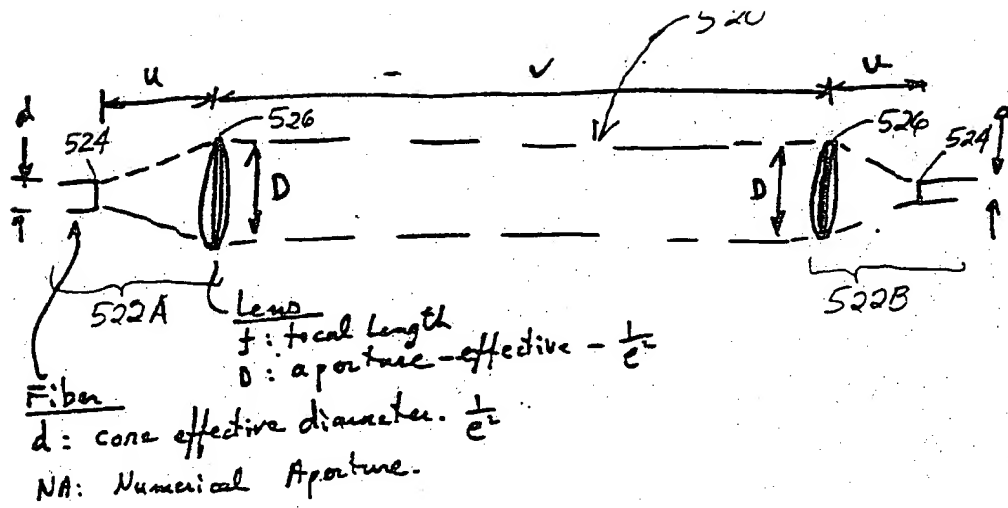 520
u - v u
d 524 526 D D 526 524
522A 522B
Lens
f: focal length
D: aperture - effective - 1/e²
Fiber
d: core effective diameter. 1/e²
NA: Numerical Aperture.